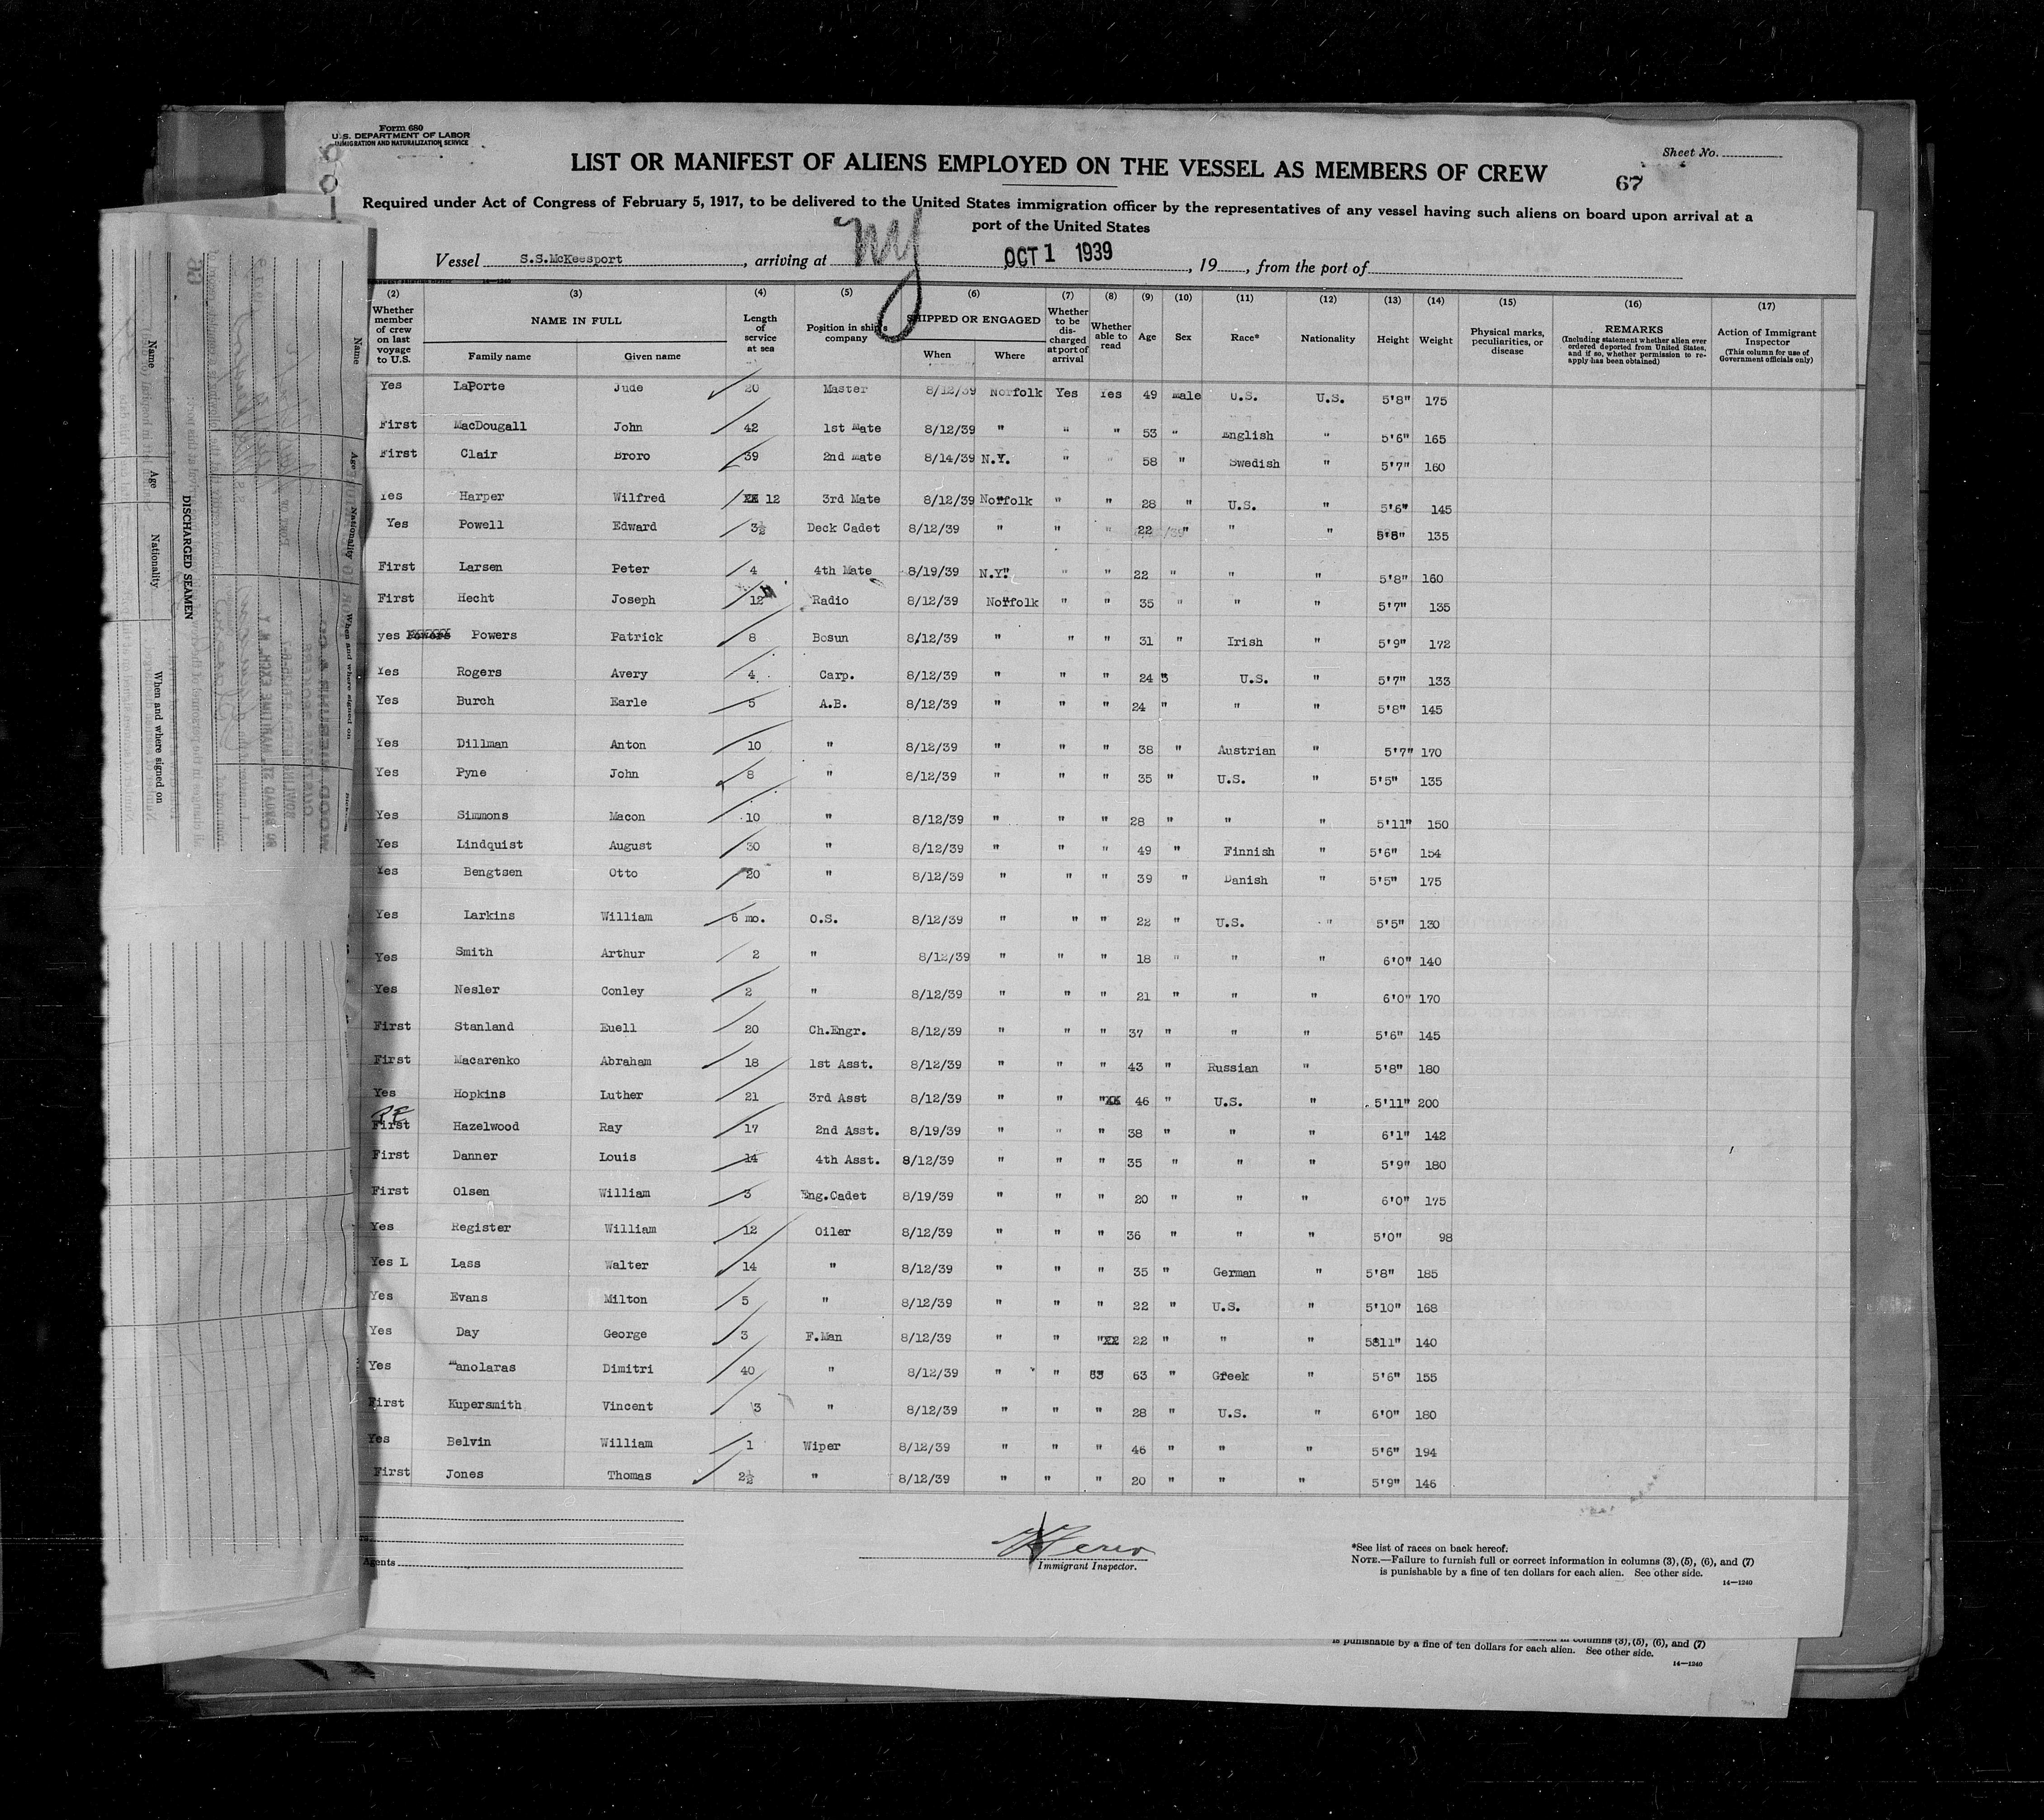 Form 680
U.S. DEPARTMENT OF LABOR
IMMIGRATION AND NATURALIZATION SERVICE
Sheet No.
LIST OR MANIFEST OF ALIENS EMPLOYED ON THE VESSEL AS MEMBERS OF CREW
67
Required under Act of Congress of February 5, 1917, to be delivered to the United States immigration officer by the representatives of any vessel having such aliens on board upon arrival at a
port of the United States
Vessel S.S.McKeesport, arriving at NY OCT 1 1939, 19, from the port of
14—1240
(2) (3) (4) (5) (6) (7) (8) (9) (10) (11) (12) (13) (14) (15) (16) (17)
Whether member of crew on last voyage to U.S. NAME IN FULL Family name Given name Length of service at sea Position in ship's company SHIPPED OR ENGAGED When Where Whether to be discharged at port of arrival Whether able to read Age Sex Race* Nationality Height Weight Physical marks, peculiarities, or disease REMARKS (Including statement whether alien ever ordered deported from United States, and if so, whether permission to re-apply has been obtained) Action of Immigrant Inspector (This column for use of Government officials only)
Yes LaPorte Jude 20 Master 8/12/39 Norfolk Yes Yes 49 male U.S. U.S. 5'8" 175
First MacDougall John 42 1st Mate 8/12/39 " " " 53 " English " 5'6" 165
First Clair Broro 39 2nd Mate 8/14/39 N.Y. " " 58 " Swedish " 5'7" 160
Yes Harper Wilfred 12 3rd Mate 8/12/39 Norfolk " " 28 " U.S. " 5'6" 145
Yes Powell Edward 3½ Deck Cadet 8/12/39 " " " 22 " " " 5'8" 135
First Larsen Peter 4 4th Mate 8/19/39 N.Y. " " 22 " " " 5'8" 160
First Hecht Joseph 12 Radio 8/12/39 Norfolk " " 35 " " " 5'7" 135
yes Powers Patrick 8 Bosun 8/12/39 " " " 31 " Irish " 5'9" 172
Yes Rogers Avery 4 Carp. 8/12/39 " " " 24 " U.S. " 5'7" 133
Yes Burch Earle 5 A.B. 8/12/39 " " " 24 " " " 5'8" 145
Yes Dillman Anton 10 " 8/12/39 " " " 38 " Austrian " 5'7" 170
Yes Pyne John 8 " 8/12/39 " " " 35 " U.S. " 5'5" 135
Yes Simmons Macon 10 " 8/12/39 " " " 28 " " " 5'11" 150
Yes Lindquist August 30 " 8/12/39 " " " 49 " Finnish " 5'6" 154
Yes Bengtsen Otto 20 " 8/12/39 " " " 39 " Danish " 5'5" 175
Yes Larkins William 6 mo. O.S. 8/12/39 " " " 22 " U.S. " 5'5" 130
Yes Smith Arthur 2 " 8/12/39 " " " 18 " " " 6'0" 140
Yes Nesler Conley 2 " 8/12/39 " " " 21 " " " 6'0" 170
First Stanland Euell 20 Ch.Engr. 8/12/39 " " " 37 " " " 5'6" 145
First Macarenko Abraham 18 1st Asst. 8/12/39 " " " 43 " Russian " 5'8" 180
Yes Hopkins Luther 21 3rd Asst 8/12/39 " " " 46 " U.S. " 5'11" 200
First Hazelwood Ray 17 2nd Asst. 8/19/39 " " " 38 " " " 6'1" 142
First Danner Louis 14 4th Asst. 8/12/39 " " " 35 " " " 5'9" 180
First Olsen William 3 Eng.Cadet 8/19/39 " " " 20 " " " 6'0" 175
Yes Register William 12 Oiler 8/12/39 " " " 36 " " " 5'0" 98
Yes L Lass Walter 14 " 8/12/39 " " " 35 " German " 5'8" 185
Yes Evans Milton 5 " 8/12/39 " " " 22 " U.S. " 5'10" 168
Yes Day George 3 F.Man 8/12/39 " " " 22 " " " 5811" 140
Yes Manolaras Dimitri 40 " 8/12/39 " " 63 " Greek " 5'6" 155
First Kupersmith Vincent 3 " 8/12/39 " " " 28 " U.S. " 6'0" 180
Yes Belvin William 1 Wiper 8/12/39 " " " 46 " " " 5'6" 194
First Jones Thomas 2½ " 8/12/39 " " " 20 " " " 5'9" 146
Agents
Immigrant Inspector.
*See list of races on back hereof.
NOTE.—Failure to furnish full or correct information in columns (3), (5), (6), and (7)
is punishable by a fine of ten dollars for each alien. See other side.
14—1240
is punishable by a fine of ten dollars for each alien. See other side.
14—1240
DISCHARGED SEAMEN
Name Age Nationality When and where signed on
Name Age Nationality When and where signed on